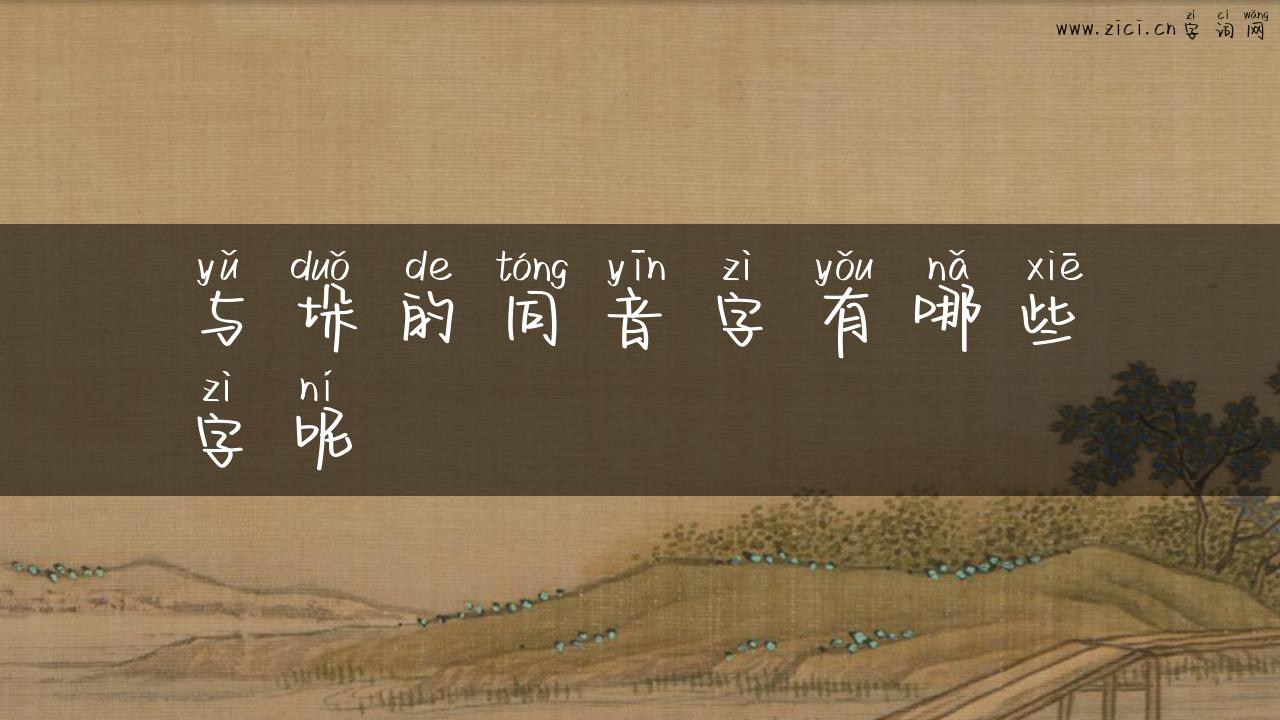 zì cí wǎng
www.zici.cn 字词网
yǔ duǒ de tóng yīn zì yǒu nǎ xiē
与垛的同音字有哪些
zì ní
字呢